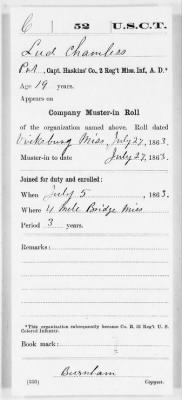 C 52 U.S.C.T.
Lud Chamless
Pvt, Capt. Haskins' Co., 2 Reg't Miss. Inf., A. D.*
Age 19 years.
Appears on
Company Muster-in Roll
of the organization named above. Roll dated
Vicksburg Miss, July 27, 1863.
Muster-in to date July 27, 1863.
Joined for duty and enrolled:
When July 5, 1863.
Where 4 Mile Bridge Miss
Period 3 years.
Remarks:
*This organization subsequently became Co. B, 52 Reg't U. S.
Colored Infantry.
Book mark:
Burnham
(330) Copyist.